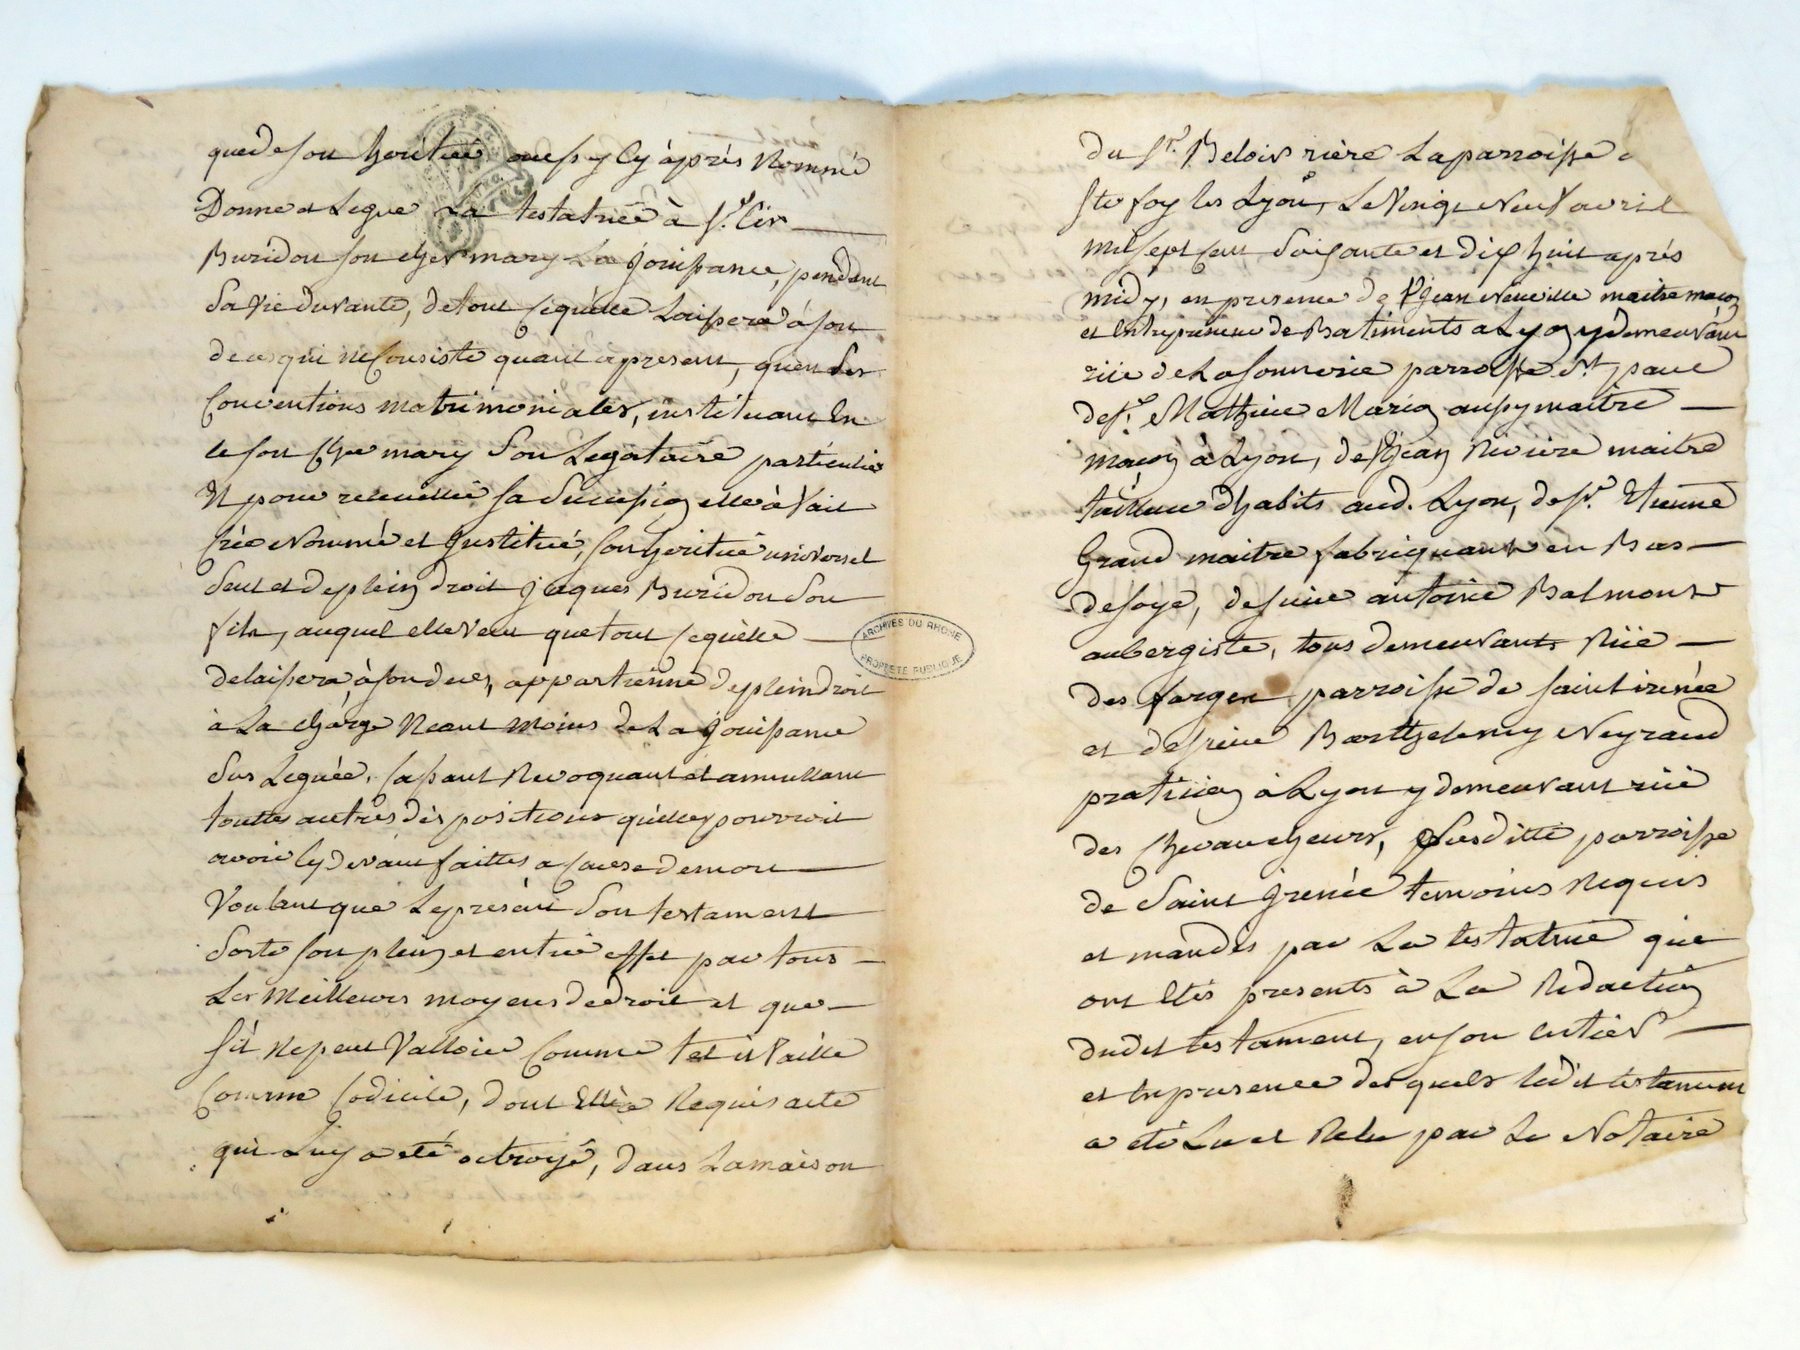 que de son heritié aussy cy après nommé
Donne et Legue La testatrice à Sr. Cir
Buridon son cher mary La jouissance, pendent
sa vie durante, de tout ce quèlle Laissera à son
deces qui ne Consiste quant à present, quen ses
Conventions matrimoniales, instituant En
ce son cher mary son Legataire particulié
Et pour recueillir sa succession elle à fait
Créé nommé et Institué, son heritié universel
seul et de plein droit Jaques Buridon son
fils, auquel elle veut que tout ce quèlle
delaissera, à son deces, appartienne de plein droit
à La charge neant moins de La jouissance
sus Leguée, Cassant Revoquant et annullant
touttes autres dis positions quelle pourroit
avoir cy devant faittes a cause de mort
Voulant que Le présent son testament
sorte son plein et entié effet par tous
Les Meilleurs moyens de droit et que
sit ne peut Valloir Comme tel il Vaille
Comme Codicile, dont Elle a Requis acte
qui Luy a eté octroyé, dans La maison
du Sr. Beloir rière La parroisse
Ste foy les Lyon, Le Vingt neuf avril
mil sept cent soixante et dix huit après
midy, en presence de Sr Jean Neuville maitre maçon
et Entrepreneur de Batiments a Lyon y demeurant
rüe de La sonnerie parroisse St. paul
de Sr. Mathieu Marion aussy maitre
maçon à Lyon, de Sr Jean Riviere maitre
tailleur dhabits aud. Lyon, de Sr. Etienne
Grand maitre fabriquant en Bas
de soye, de sieur antoine Balmont
aubergiste, tous demeurants Rüe
des farges parroisse de saint irenée
et de sieur Barthelemy Neyraud
praticien à Lyon y demeurant rüe
des Chevaucheurs, susditte parroisse
de Saint Irenée temoins Requis
et mandés par La testatrice qui
ont Etés presents à La Redaction
dudit testament, en son entier
et En presence des quels ledit testament
a eté Lu et Relu par Le Notaire
ARCHIVES DU RHONE
PROPRIETE PUBLIQUE